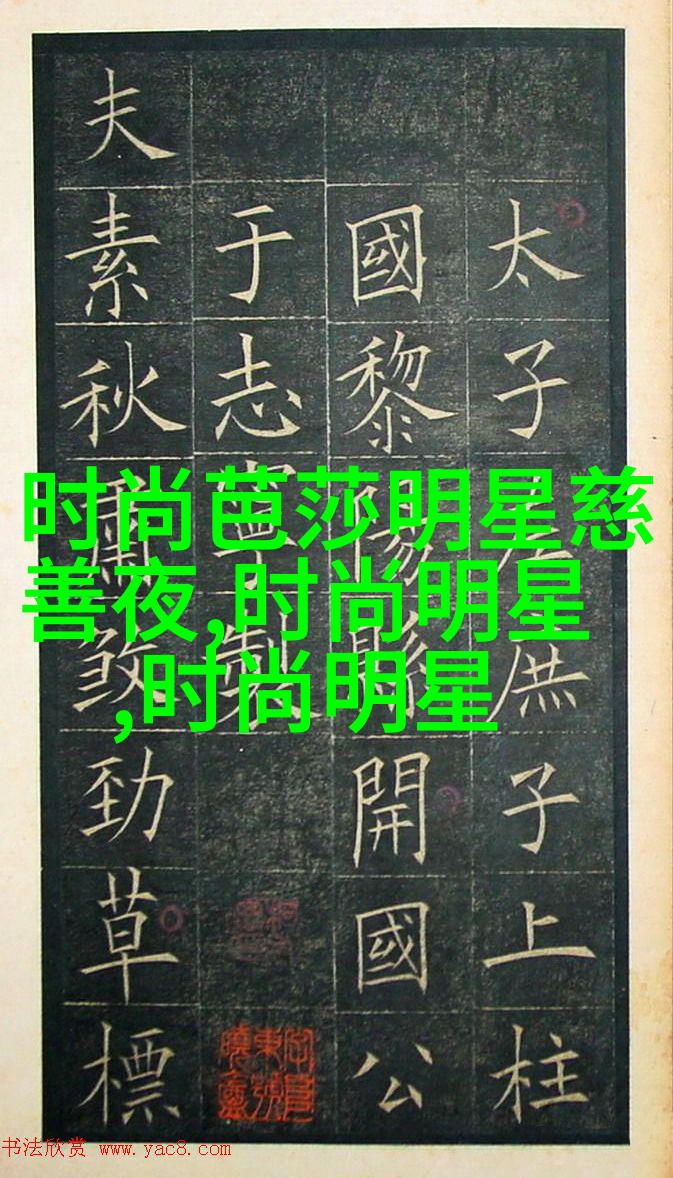 太子左庶子上柱
國黎陽縣開國公
于志寧製
夫素秋肅煞勁草標
时尚芭莎明星慈
善夜,时尚明星
,时尚明星
书法欣赏 www.yac8.com